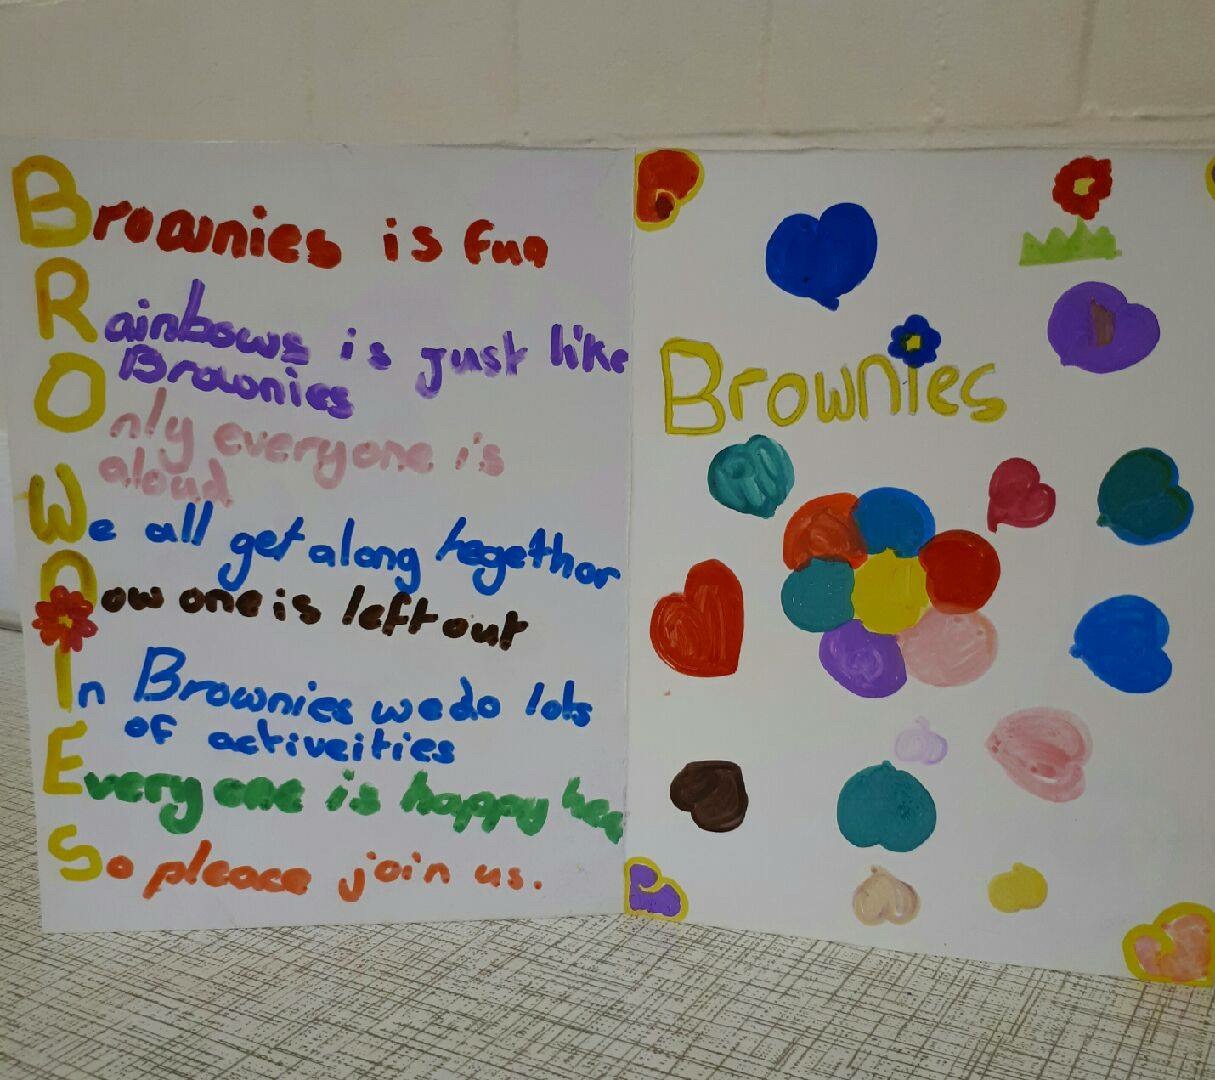 Brownies is fun
Rainbows is just like
Brownies
Only everyone is
aloud
We all get along tegethor
Now one is left out
In Brownies we do lots
of activeities
Everyone is happy
So pleace join us.
Brownies